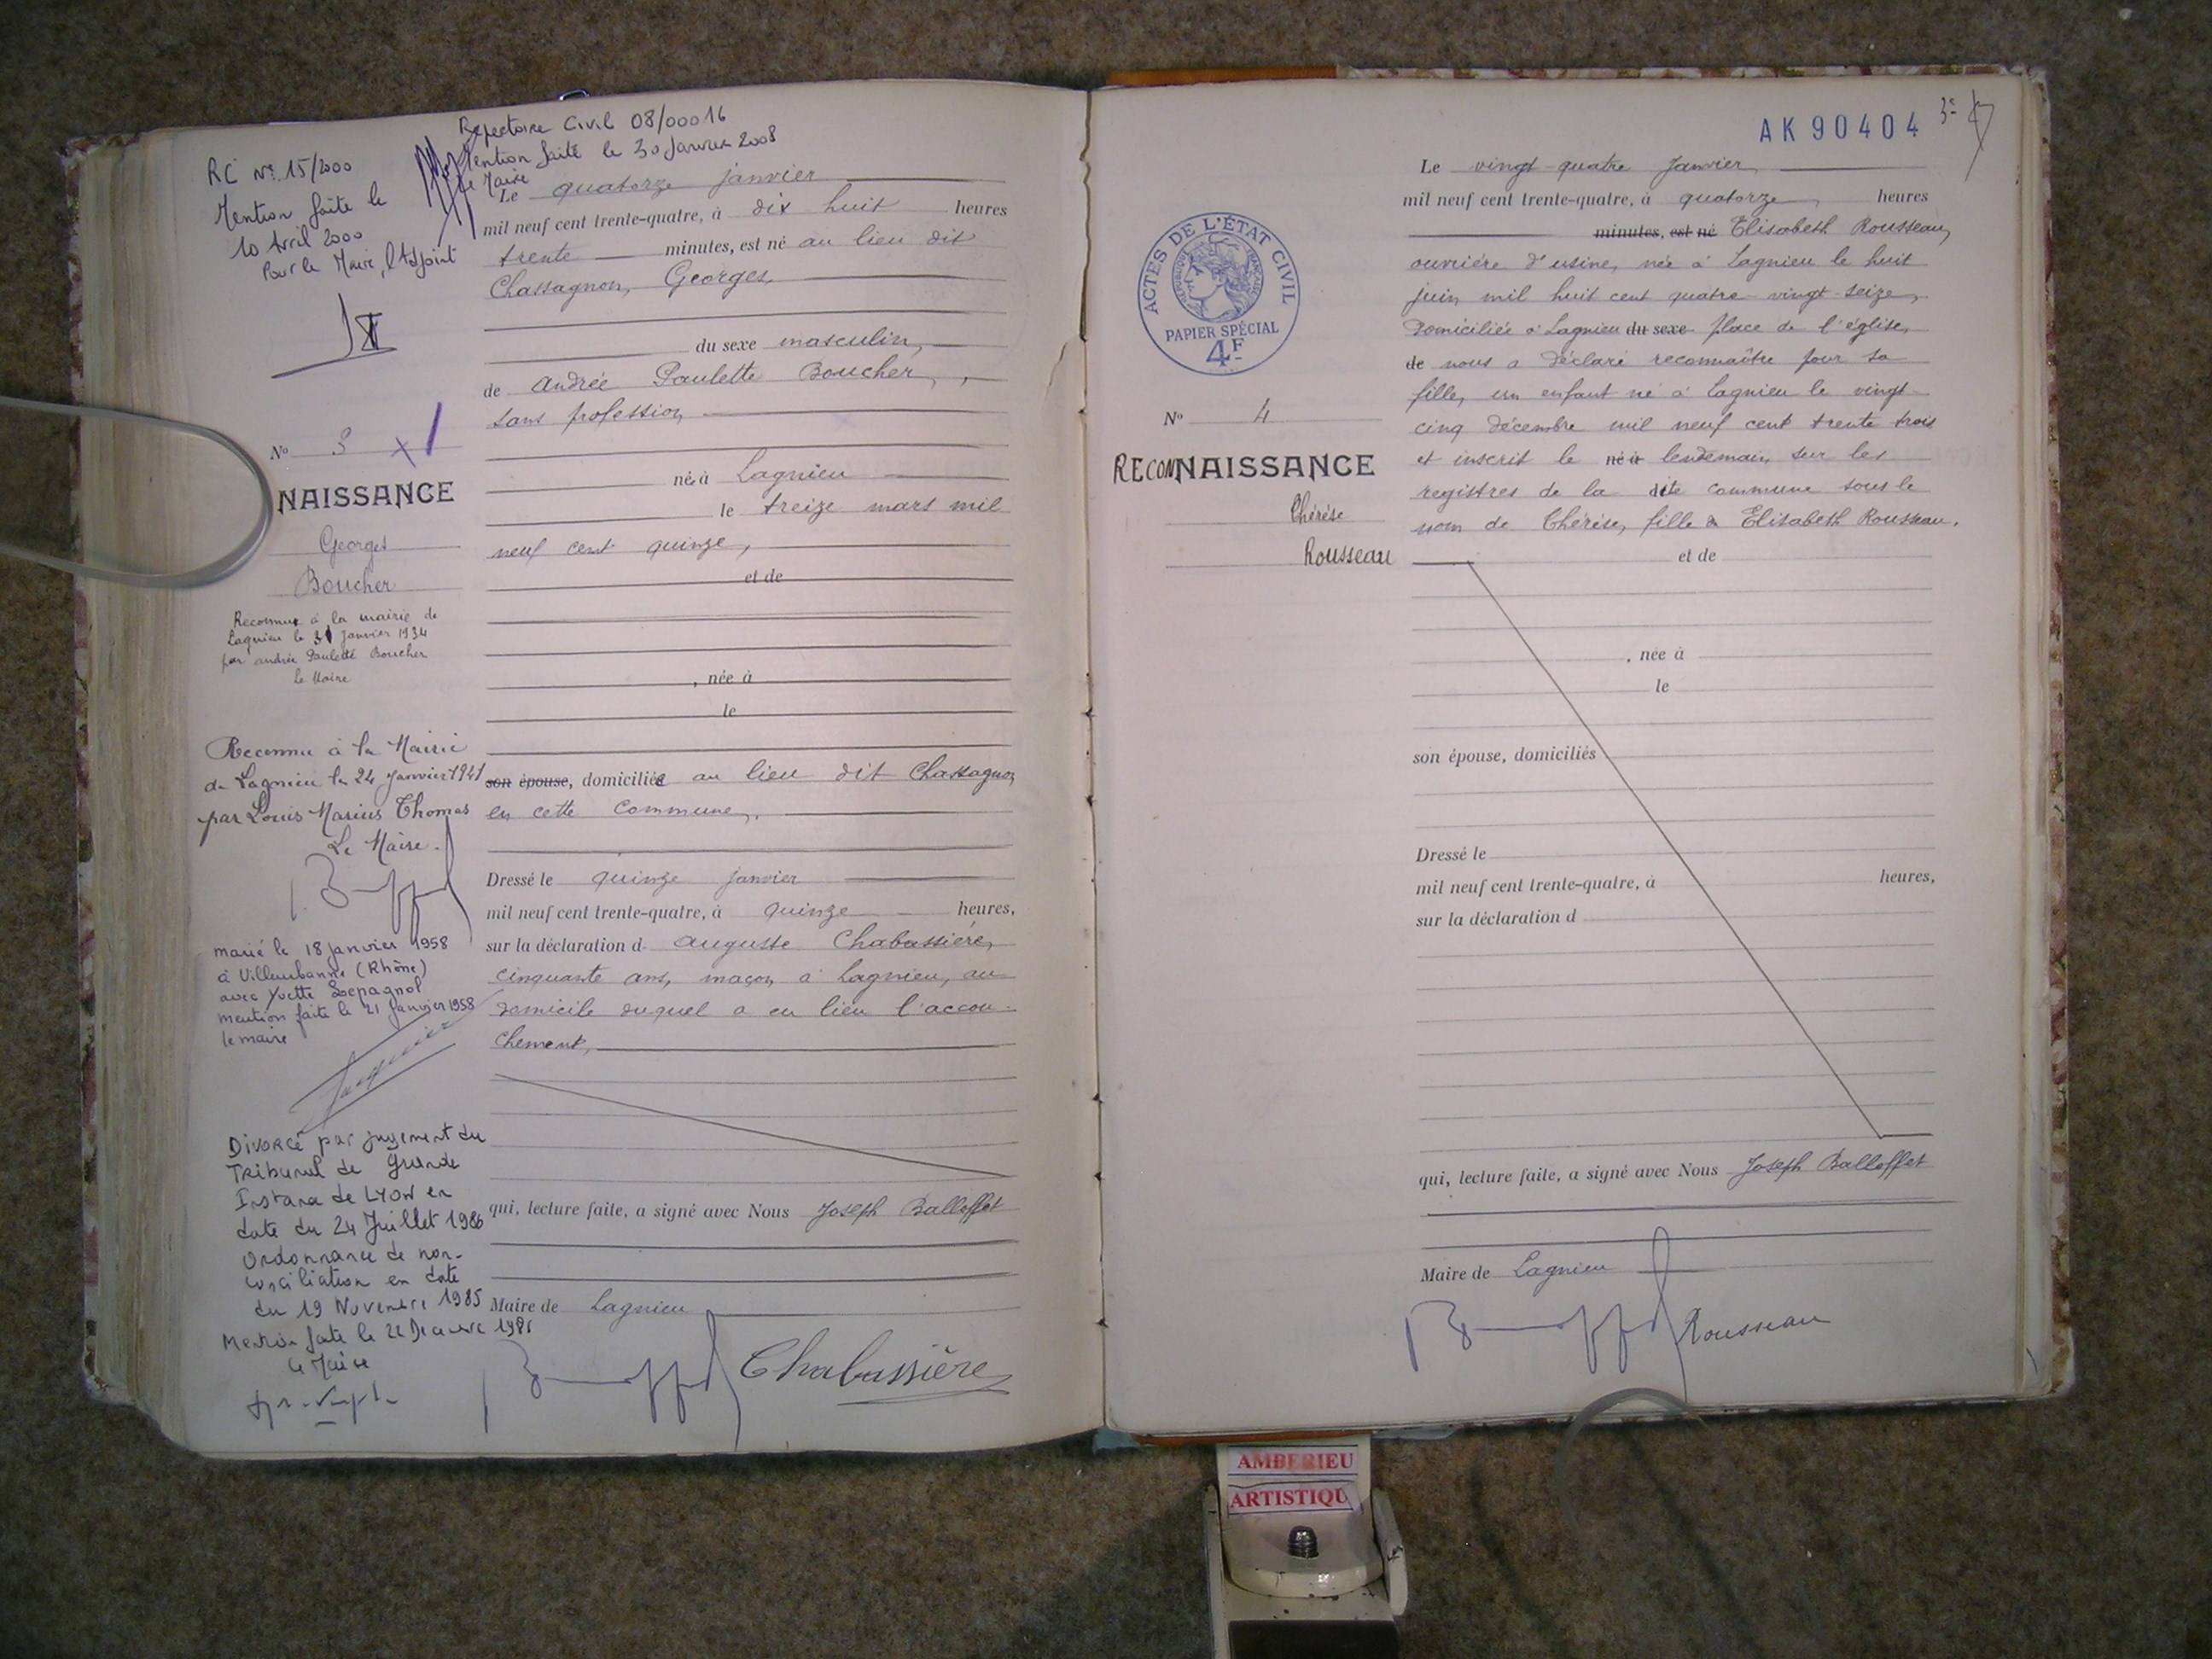 Repertoire Civil 08/00016
Mention faite le 30 Janvier 2008
Le Maire
RC N° 15/2000
Mention faite le
10 Avril 2000
Pour le Maire, l'Adjoint
N° 3
NAISSANCE
Georges
Boucher
Reconnu à la mairie de
Lagnieu le 31 Janvier 1934
par Andrée Paulette Boucher
Le Maire
Reconnu à la Mairie
de Lagnieu le 24 Janvier 1941
par Louis Marius Thomas
Le Maire.
marié le 18 janvier 1958
à Villeurbanne (Rhône)
avec Yvette
mention faite le 21 Janvier 1958
le maire
Divorcé par jugement du
Tribunal de Grande
Instance de LYON en
date du 24 Juillet 1986
Ordonnance de non-
conciliation en date
du 19 Novembre 1985
Mention faite le
Le Maire
Le quatorze janvier
mil neuf cent trente-quatre, à dix huit heures
trente minutes, est né au lieu dit
Chassagnon, Georges,
du sexe masculin,
de Andrée Paulette Boucher,
sans profession
né à Lagnieu
le treize mars mil
neuf cent quinze,
et de
, née à
le
son épouse, domiciliée au lieu dit Chassagnon
en cette commune,
Dressé le quinze janvier
mil neuf cent trente-quatre, à quinze heures,
sur la déclaration d auguste Chabassière,
cinquante ans, maçon à Lagnieu, au
domicile duquel a eu lieu l'accou-
chement,
qui, lecture faite, a signé avec Nous Joseph Balloffet
Maire de Lagnieu
Chabassière
AK 90404
3e
ACTES DE L'ÉTAT CIVIL
RÉPUBLIQUE FRANÇAISE
PAPIER SPÉCIAL
4F
N° 4
RECONNAISSANCE
Thérèse
Rousseau
Le vingt-quatre Janvier
mil neuf cent trente-quatre, à quatorze heures
minutes, est né Elisabeth Rousseau,
ouvrière d'usine, née à Lagnieu le huit
juin mil huit cent quatre-vingt-seize,
domiciliée à Lagnieu du sexe place de l'église,
de nous a déclaré reconnaître pour sa
fille, un enfant né à Lagnieu le vingt-
cinq décembre mil neuf cent trente trois
et inscrit le né à lendemain sur les
registres de la dite commune sous le
nom de Thérèse, fille de Elisabeth Rousseau.
et de
, née à
le
son épouse, domiciliés
Dressé le
mil neuf cent trente-quatre, à heures,
sur la déclaration d
qui, lecture faite, a signé avec Nous Joseph Balloffet
Maire de Lagnieu
Rousseau
AMBERIEU
ARTISTIQU